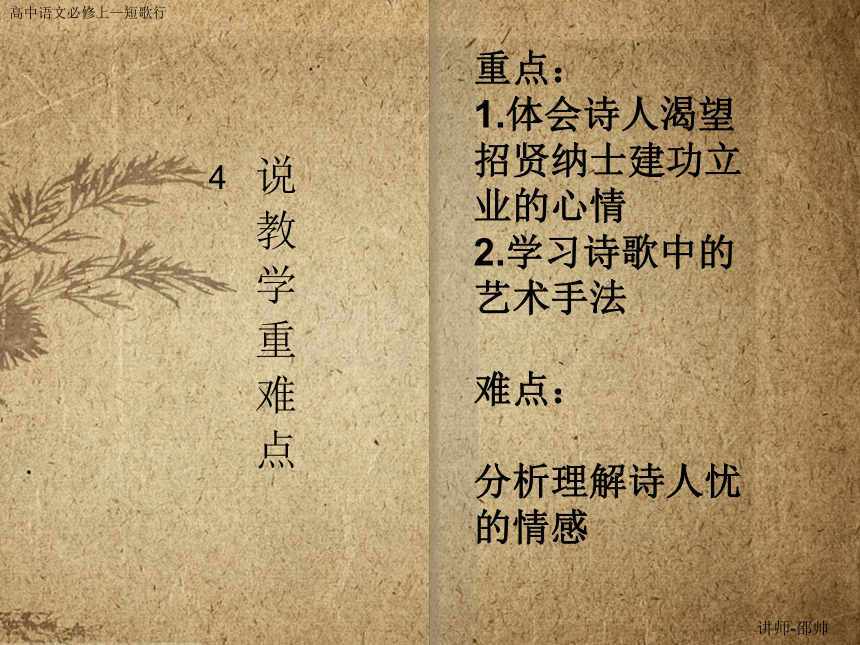 高中语文必修上—短歌行
4
说教学重难点
重点：
1.体会诗人渴望
招贤纳士建功立
业的心情
2.学习诗歌中的
艺术手法
难点：
分析理解诗人忧
的情感
讲师-邵帅